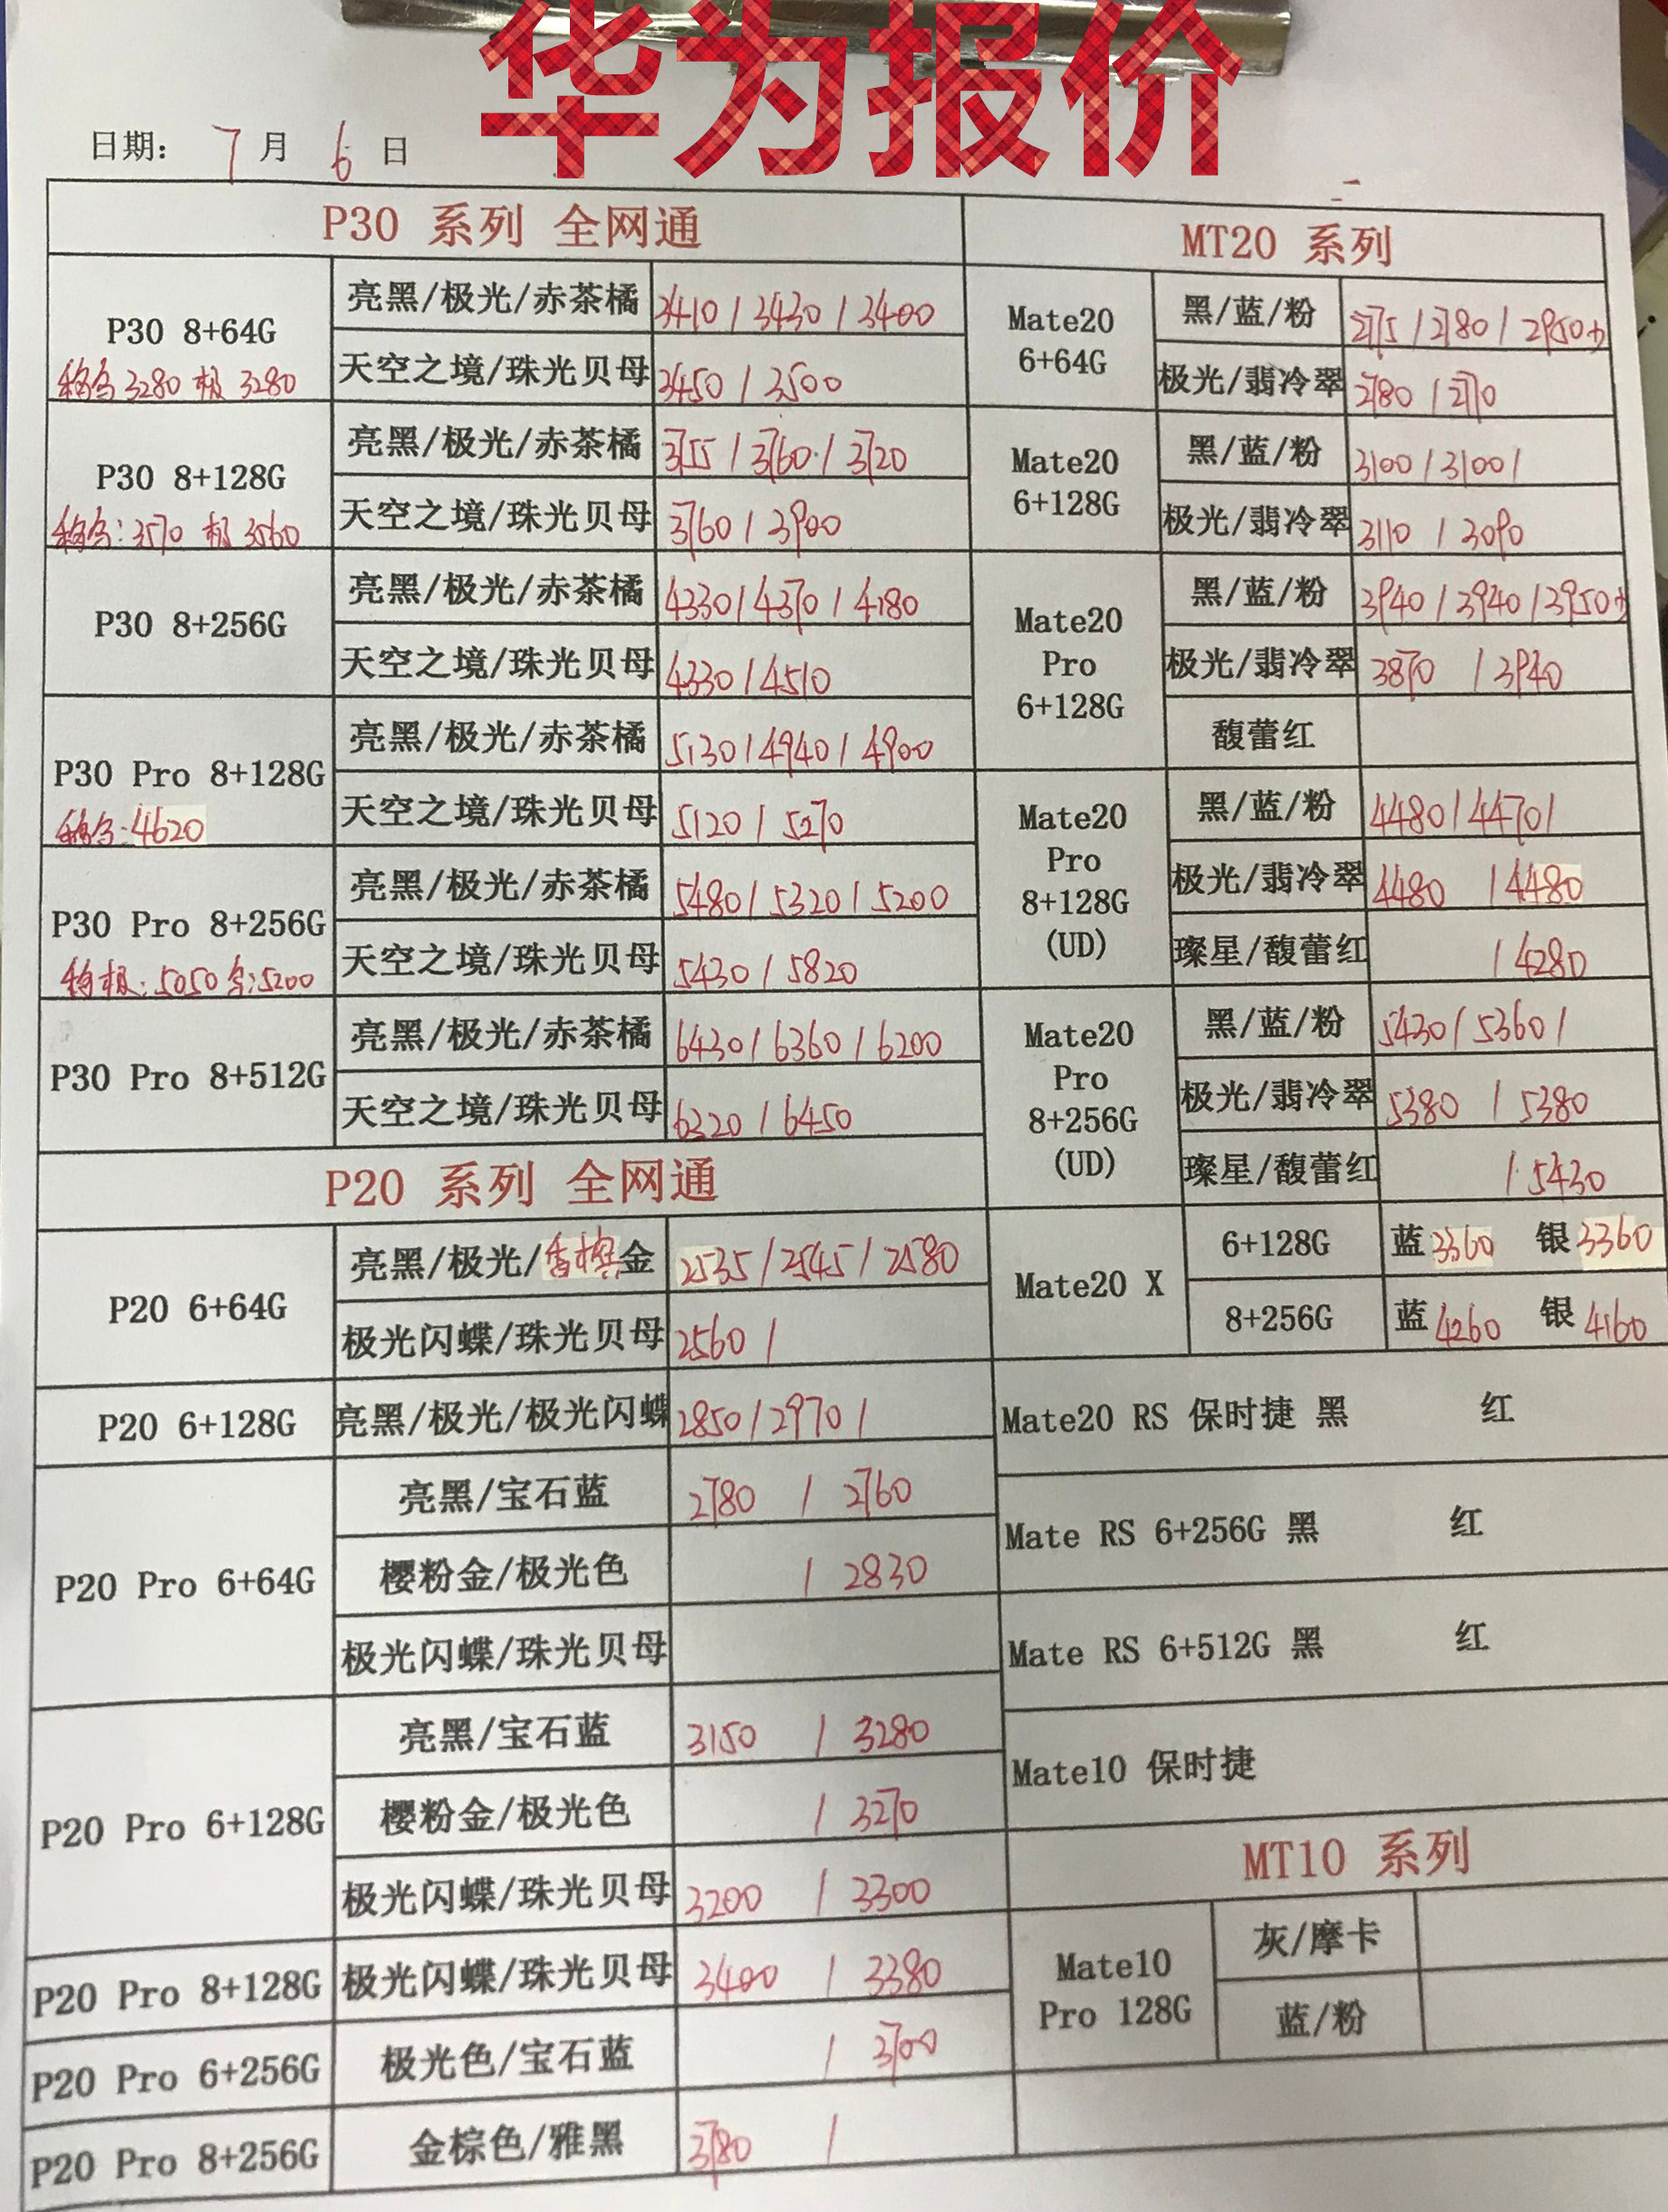 华为报价
日期: 7 月 6 日
P30 系列 全网通
P30 8+64G
亮黑/极光/赤茶橘 3410/3430/3400
天空之境/珠光贝母 3450/3500
3280 极 3280
P30 8+128G
亮黑/极光/赤茶橘 3755/3760/3720
天空之境/珠光贝母 3760/3900
3570 极 3560
P30 8+256G
亮黑/极光/赤茶橘 4330/4370/4180
天空之境/珠光贝母 4330/4510
P30 Pro 8+128G
亮黑/极光/赤茶橘 5130/4940/4900
天空之境/珠光贝母 5120/5270
4620
P30 Pro 8+256G
亮黑/极光/赤茶橘 5480/5320/5200
天空之境/珠光贝母 5430/5820
极:5050 :5200
P30 Pro 8+512G
亮黑/极光/赤茶橘 6430/6360/6200
天空之境/珠光贝母 6320/6450
P20 系列 全网通
P20 6+64G
亮黑/极光/香槟金 2535/2545/2580
极光闪蝶/珠光贝母 2560/
P20 6+128G
亮黑/极光/极光闪蝶 2850/2970/
P20 Pro 6+64G
亮黑/宝石蓝 2780 / 2760
樱粉金/极光色 / 2830
极光闪蝶/珠光贝母
P20 Pro 6+128G
亮黑/宝石蓝 3150 / 3280
樱粉金/极光色 / 3270
极光闪蝶/珠光贝母 3200 / 3300
P20 Pro 8+128G
极光闪蝶/珠光贝母 3400 / 3380
P20 Pro 6+256G
极光色/宝石蓝 / 3700
P20 Pro 8+256G
金棕色/雅黑 3780 /
MT20 系列
Mate20
6+64G
黑/蓝/粉 2775/2780/2950
极光/翡冷翠 2780/2770
Mate20
6+128G
黑/蓝/粉 3100/3100/
极光/翡冷翠 3110 / 3090
Mate20
Pro
6+128G
黑/蓝/粉 3940/3940/3950
极光/翡冷翠 3870 / 3940
馥蕾红
Mate20
Pro
8+128G
(UD)
黑/蓝/粉 4480/4470/
极光/翡冷翠 4480 /4480
璨星/馥蕾红 / 4280
Mate20
Pro
8+256G
(UD)
黑/蓝/粉 5430/5360/
极光/翡冷翠 5380 / 5380
璨星/馥蕾红 / 5430
Mate20 X
6+128G 蓝 3360 银 3360
8+256G 蓝 4260 银 4160
Mate20 RS 保时捷 黑 红
Mate RS 6+256G 黑 红
Mate RS 6+512G 黑 红
Mate10 保时捷
MT10 系列
Mate10
Pro 128G
灰/摩卡
蓝/粉